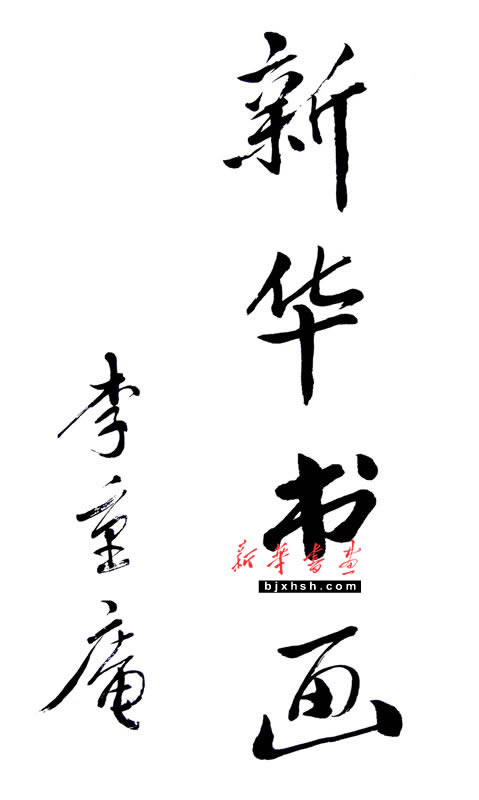 新华书画
李重庵
新华书画
bjxhsh.com